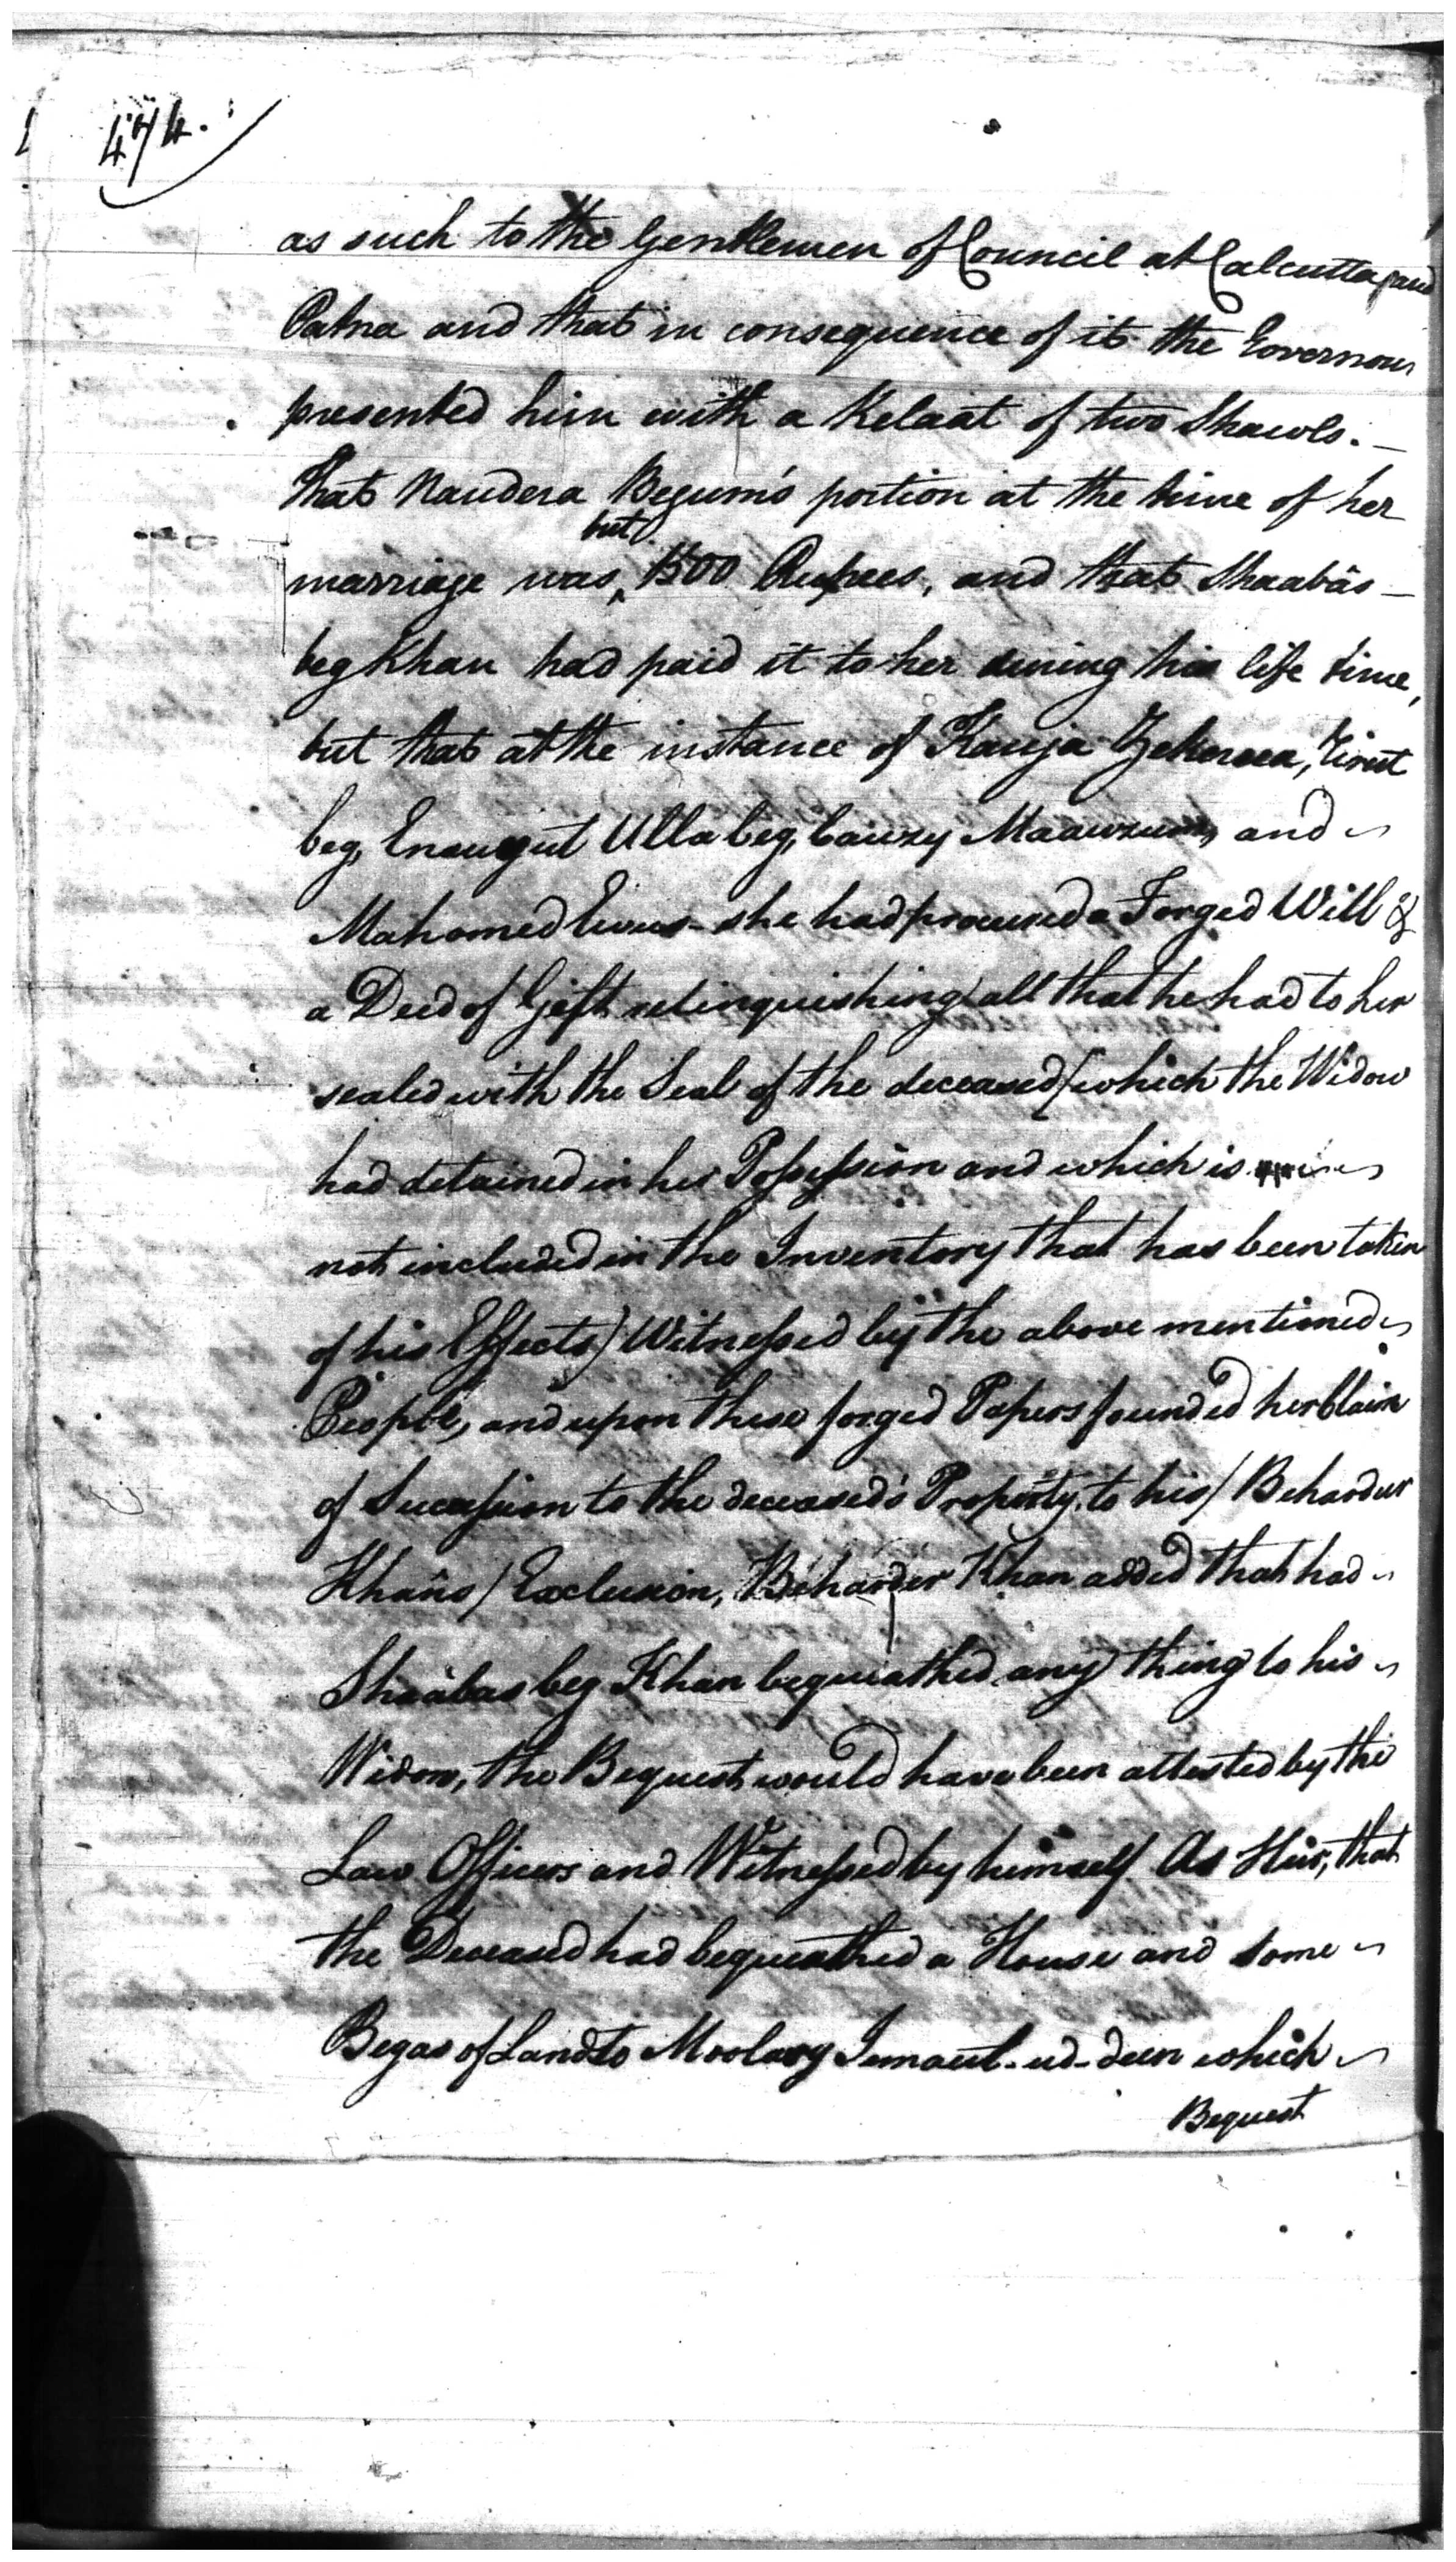 474.
as such to the Gentlemen of Council at Calcutta, and
Patna and that in consequence of it the Governour
presented him with a Kelaat of two Shawls. —
That Naudera Begum's portion at the time of her
but
marriage was 1500 Rupees, and that Shaabâs —
beg Khan had paid it to her during his life time,
but that at the instance of Kauja Zekereea,
beg, Enaugut Ulla beg, Cauzy Maawzum, and
Mahomed she had procured a Forged Will &
a Deed of Gift relinquishing all that he had to her
sealed with the Seal of the deceased (which the Widow
had detained in her Possession and which is
not included in the Inventory that has been taken
of his Effects) Witnessed by the above mentioned
People, and upon these forged Papers founded her Claim
of Succession to the deceased's Property, to his / Behardur
Khan's / Exclusion, Beharder Khan added that had
Shaabas beg Khan bequeathed any thing to his
Widow, the Bequest would have been attested by the
Law Officers and Witnessed by himself As Heir, that
the Deceased had bequeathed a House and some
Begas of Land to Moolavy Iemaul-ud-deen which
Bequest